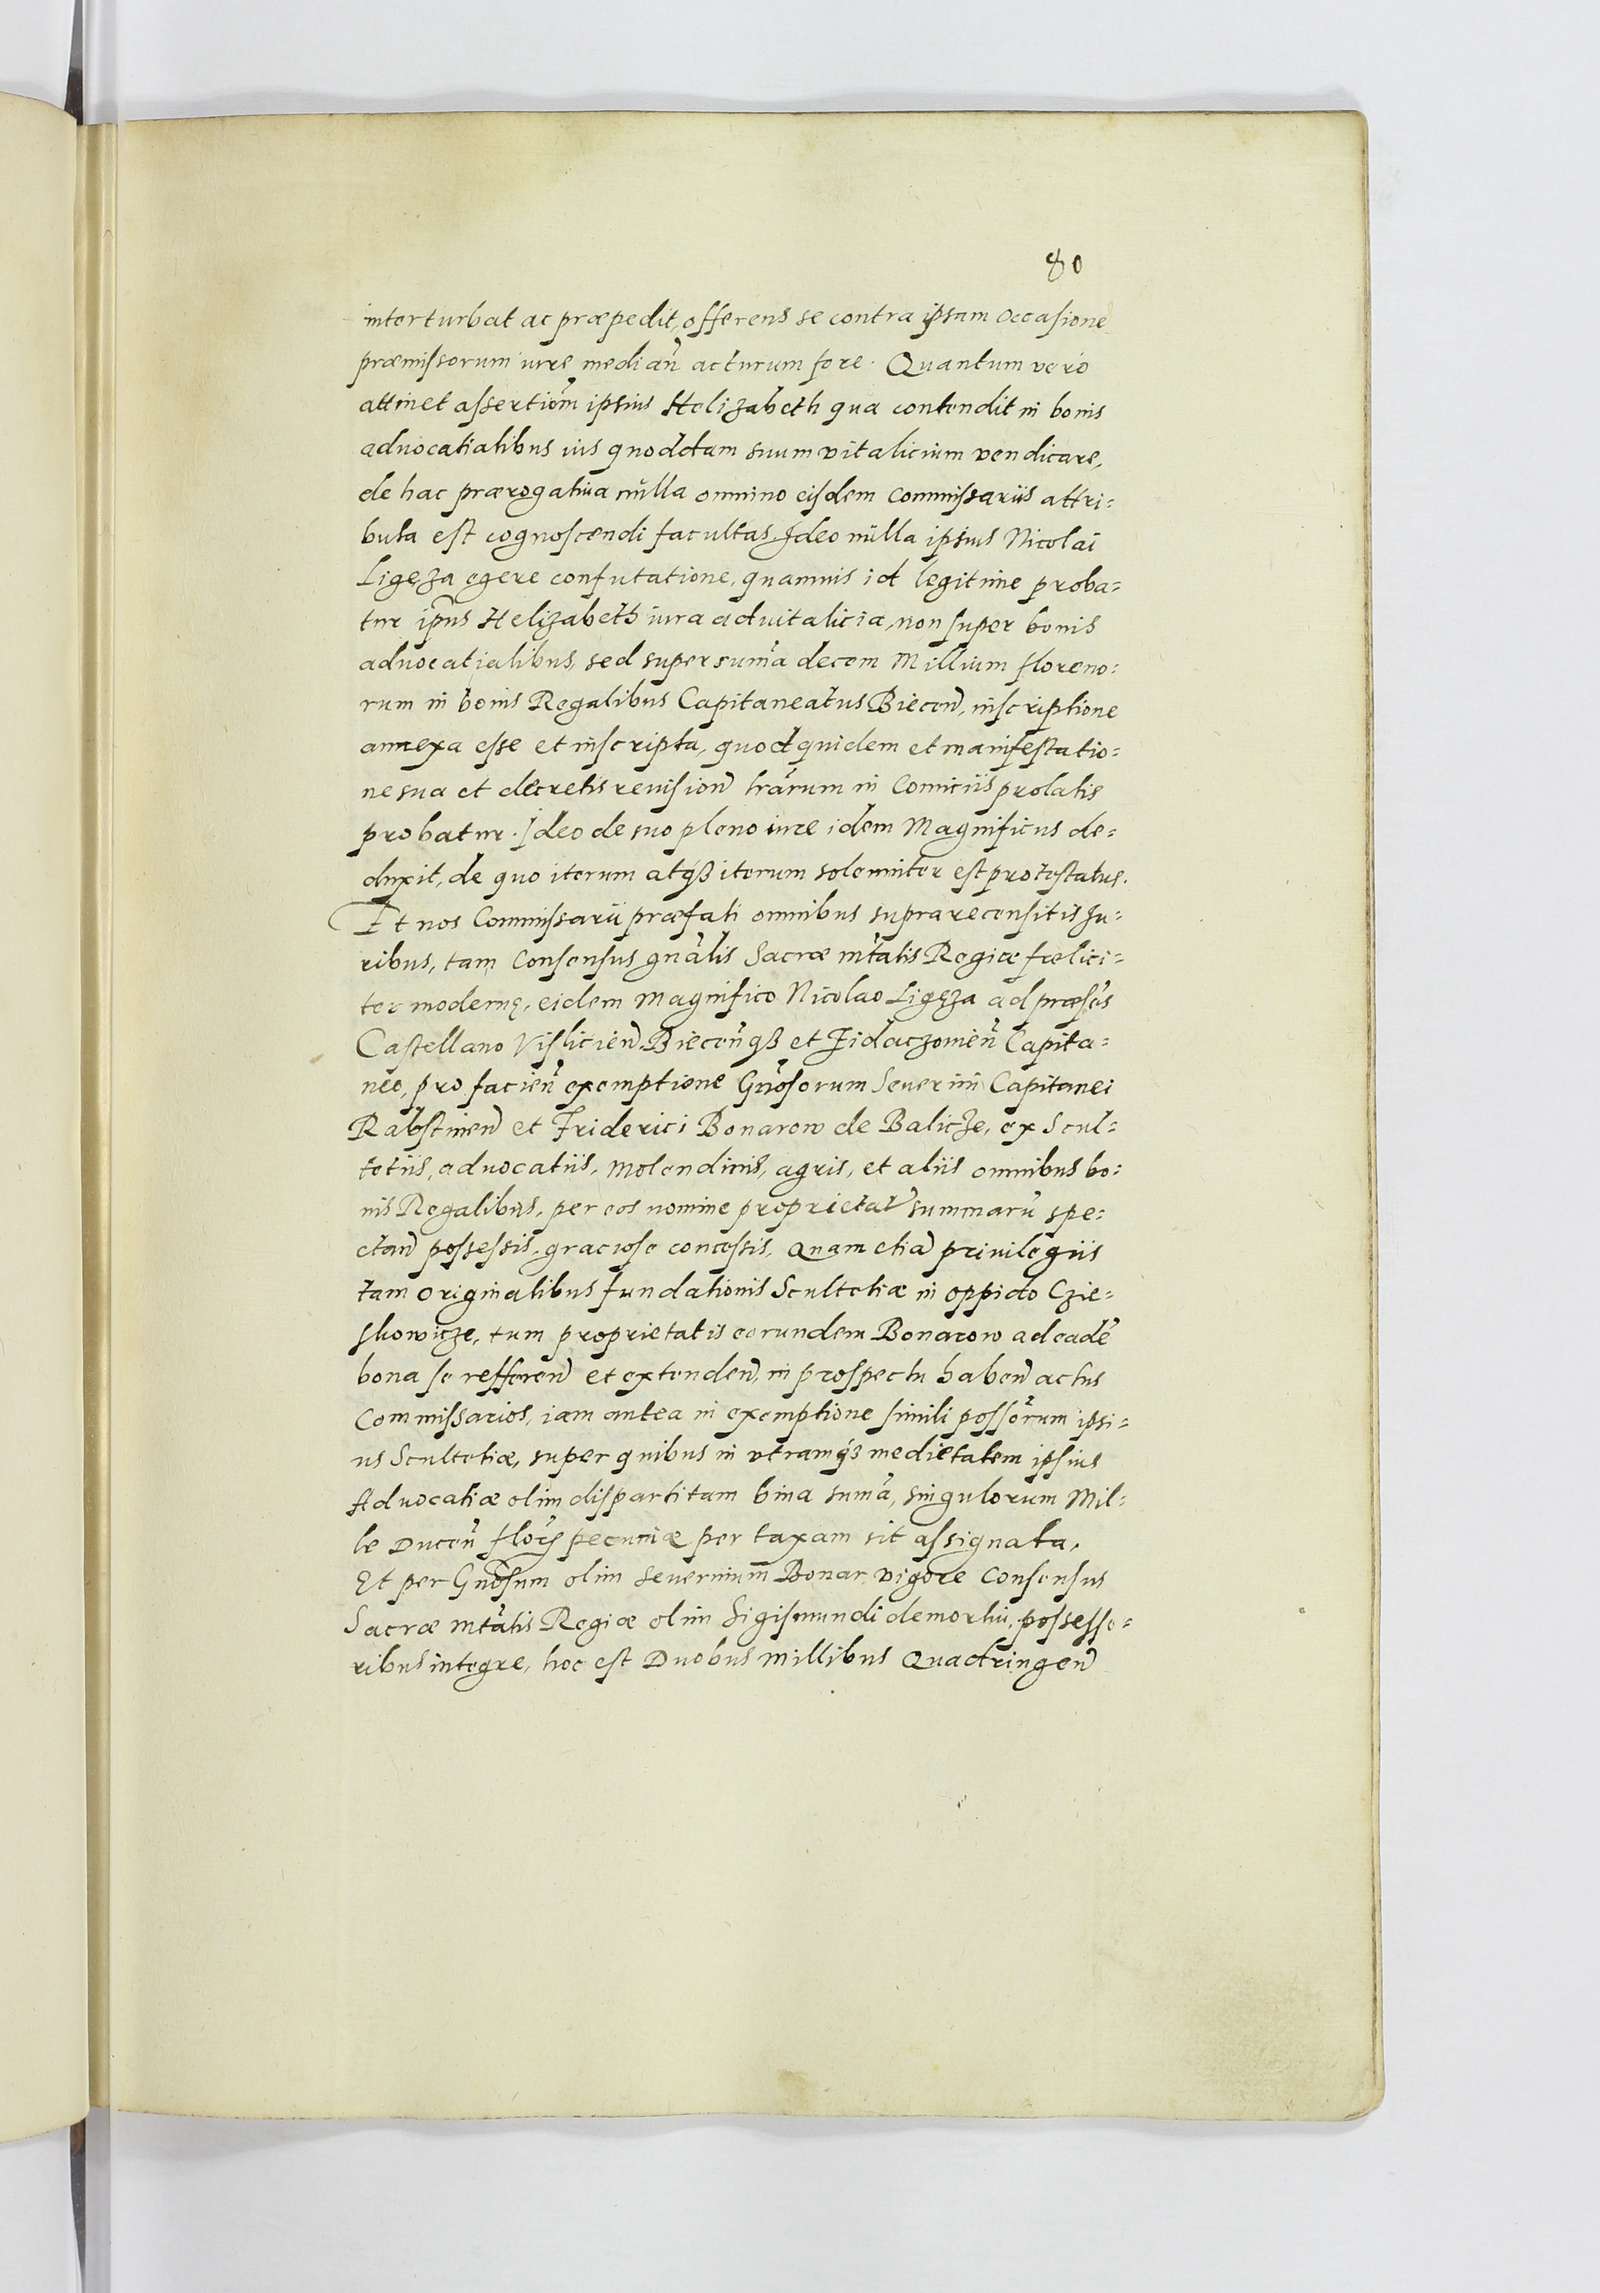 80
interturbat ac præpedit, offerens se contra ipsam Occasione
præmissorum iure median̄ acturum fore. Quantum vero
attinet assertiōm ipsius Helizabeth qua contendit in bonis
aduocatialibus ius quoddam suum vitalicium vendicare,
de hac prærogatiua nulla omnino eisdem Commissariis attri=
buta est cognoscendi facultas, Ideo nulla ipsius Nicolai
Ligęza egere confutatione, quamuis id legitime proba=
tur ip̄ius Helizabeth iura aduitalicia, non super bonis
aduocatialibus, sed super sum̄a decem Millium floreno=
rum in bonis Regalibus Capitaneatus Biecen̄, inscriptione
annexa esse et inscripta, quod quidem et manifestatio=
ne sua et decretis reuision̄ lr̄arum in Comiciis prolatis
probatur. Ideo de suo pleno iure idem Magnificus de=
duxit, de quo iterum atq3 iterum solemniter est protestatus.
Et nos Commissarii præfati omnibus supra recensitis Ju=
ribus, tam Consensus gn̄alis Sacræ mt̄atis Regiæ fælici=
ter modernę, eidem Magnifico Nicolao Ligęza ad præsēs
Castellano Visliciēn Biecen̄q3 et Zidaczowien̄ Capita=
neo, pro facien̄ exemptione Gn̄osorum Seuerini Capitanei
Rabstinen̄ et Friderici Bonarow de Balicze, ex Scul=
tetiis, aduocatiis, Molendinis, agris, et aliis omnibus bo=
nis Regalibus, per eos nomine proprietat̄ summarū spe=
ctan̄ possessis, graciose concessis, Quam etiā priuilegiis
tam originalibus fundationis Scultetiæ in oppido Czie=
skowicze, tum proprietatis eorundem Bonarow ad eadē
bona se refferen̄ et extenden̄, in prospectu haben̄ actus
Commissarios, iam antea in exemptione simili poss̄orum ipsi=
us Scultetiæ, super quibus in vtramq3 medietatem ipsius
Aduocatiæ olim dispartitam bina sum̄a, singulorum Mil=
le Ducen̄ flor̄ pecuniæ per taxam sit assignata,
Et per Gn̄osum olim Seuerinum Bonar vigore Consensus
Sacræ mt̄atis Regiæ olim Sigismundi demortui, possesso=
ribus integre, hoc est Duobus millibus Quadringen̄